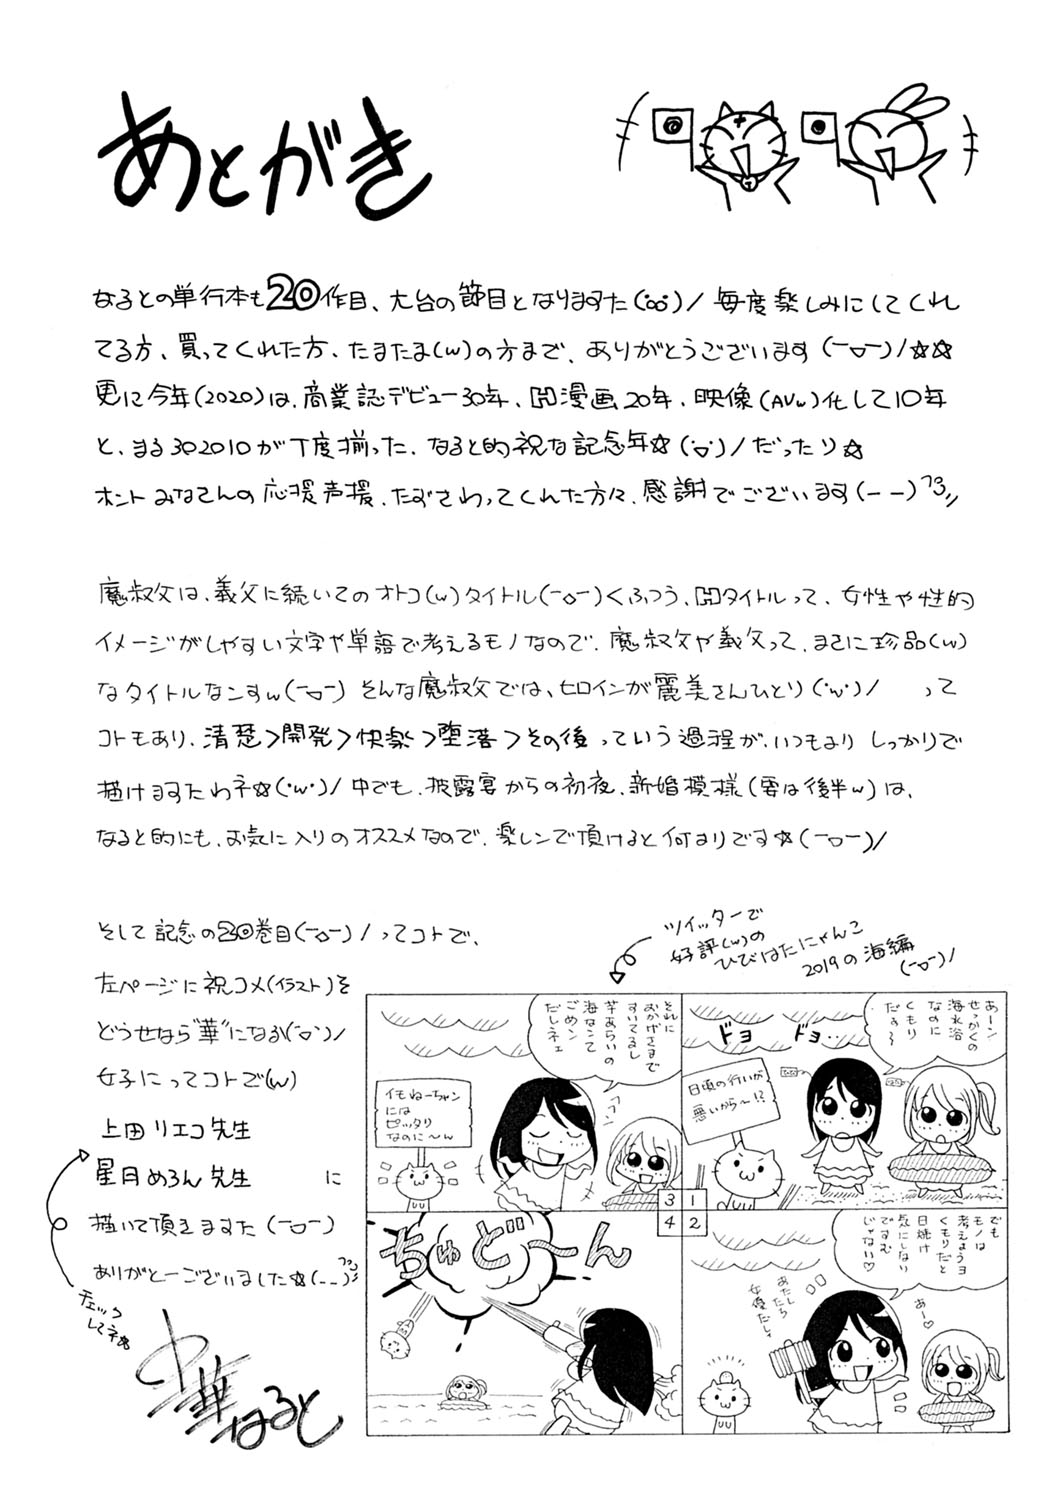 あとがき
なるとの単行本も20作目、大台の節目となりますた(°◇°)/ 毎度楽しみにしてくれ
てる方、買ってくれた方、たまたま(w)の方まで、ありがとうございます(ー▽ー)/☆☆
更に今年(2020)は、商業誌デビュー30年、H漫画20年、映像(AVw)化して10年
と、まる302010が丁度揃った、なると的祝な記念年☆(・▽・)/だったり☆
ホントみなさんの応援声援、たずさわってくれた方々、感謝でございます(ーー)フヨ〃
魔叔父は、義父に続いてのオトコ(w)タイトル(ー◇ー)くふつう、Hタイトルって、女性や性的
イメージがしやすい文字や単語で考えるモノなので、魔叔父や義父って、まさに珍品(w)
なタイトルなンすw(ー▽ー) そんな魔叔父では、ヒロインが麗美さんひとり(・w・)/ って
コトもあり、清楚>開発>快楽>堕落>その後 っていう過程が、いつもより しっかりで
描けますたわネ☆(・w・)/ 中でも、披露宴からの初夜、新婚模様(要は後半w)は、
なると的にも、お気に入りのオススメなので、楽しンで頂けると何よりです☆(ー▽ー)/
そして記念の20巻目(ー◇ー)/ ってコトで、
左ページに祝コメ(イラスト)を
どうせなら“華”になる(▽)/
女子にってコトで(w)
上田リエコ先生
星月めろん先生 に
描いて頂きますた(ー▽ー)
ありがとーございました☆(ーー)フヨ〃
チェック
してネ☆
中華なると
ツイッターで
好評(w)の
ひびはたにゃんこ
2019の海編
(ー▽ー)/
1
あーン
せっかくの
海水浴
なのに
くもり
だす〜
ドョ ドョ‥
日頃の行いが
悪いから〜!?
2
でも
モノは
考えようヨ
くもりだと
日焼け
気にしない
ですむ
じゃない♡
あー♡
あたしたら
女優だしィ
3
それに
おかげさまで
すいてるし
芋あらいの
海なンて
ごめン
だしネェ
フフン
イモねーちゃン
には
ピッタリ
なのに〜ん
4
ちゅど〜ん